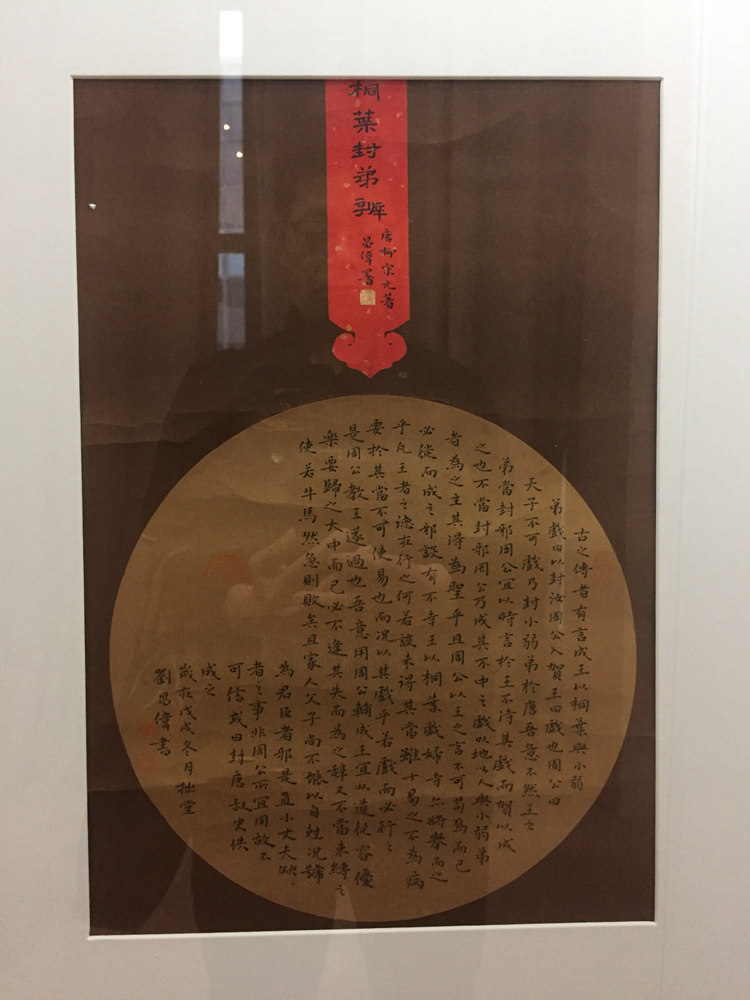 桐葉封弟辨
唐柳宗元著
昌偉署
古之傳者有言成王以桐葉與小弱
弟戲曰以封汝周公入賀王曰戲也周公曰
天子不可戲乃封小弱弟於唐吾意不然王之
弟當封邪周公宜以時言於王不待其戲而賀以成
之也不當封邪周公乃成其不中之戲以地以人與小弱弟
者為之主其得為聖乎且周公以王之言不可苟焉而已
必從而成之邪設有不幸王以桐葉戲婦寺亦將舉而之
乎凡王者之德在行之何若設未得其當雖十易之不為病
要於其當不可使易也而況以其戲乎若戲而必行之
是周公教王遂過也吾意周周公輔成王宜以道從容優
樂要歸之大中而已必不逢其失而為之辭又不當束縛之
使若牛馬然急則敗矣且家人父子尚不能以自尅況號
為君臣者邪是直小丈夫缺缺
者之事非周公所宜周故不
可信或曰封唐叔史佚
成之
歲在戊戌冬月拙堂
劉昌偉書